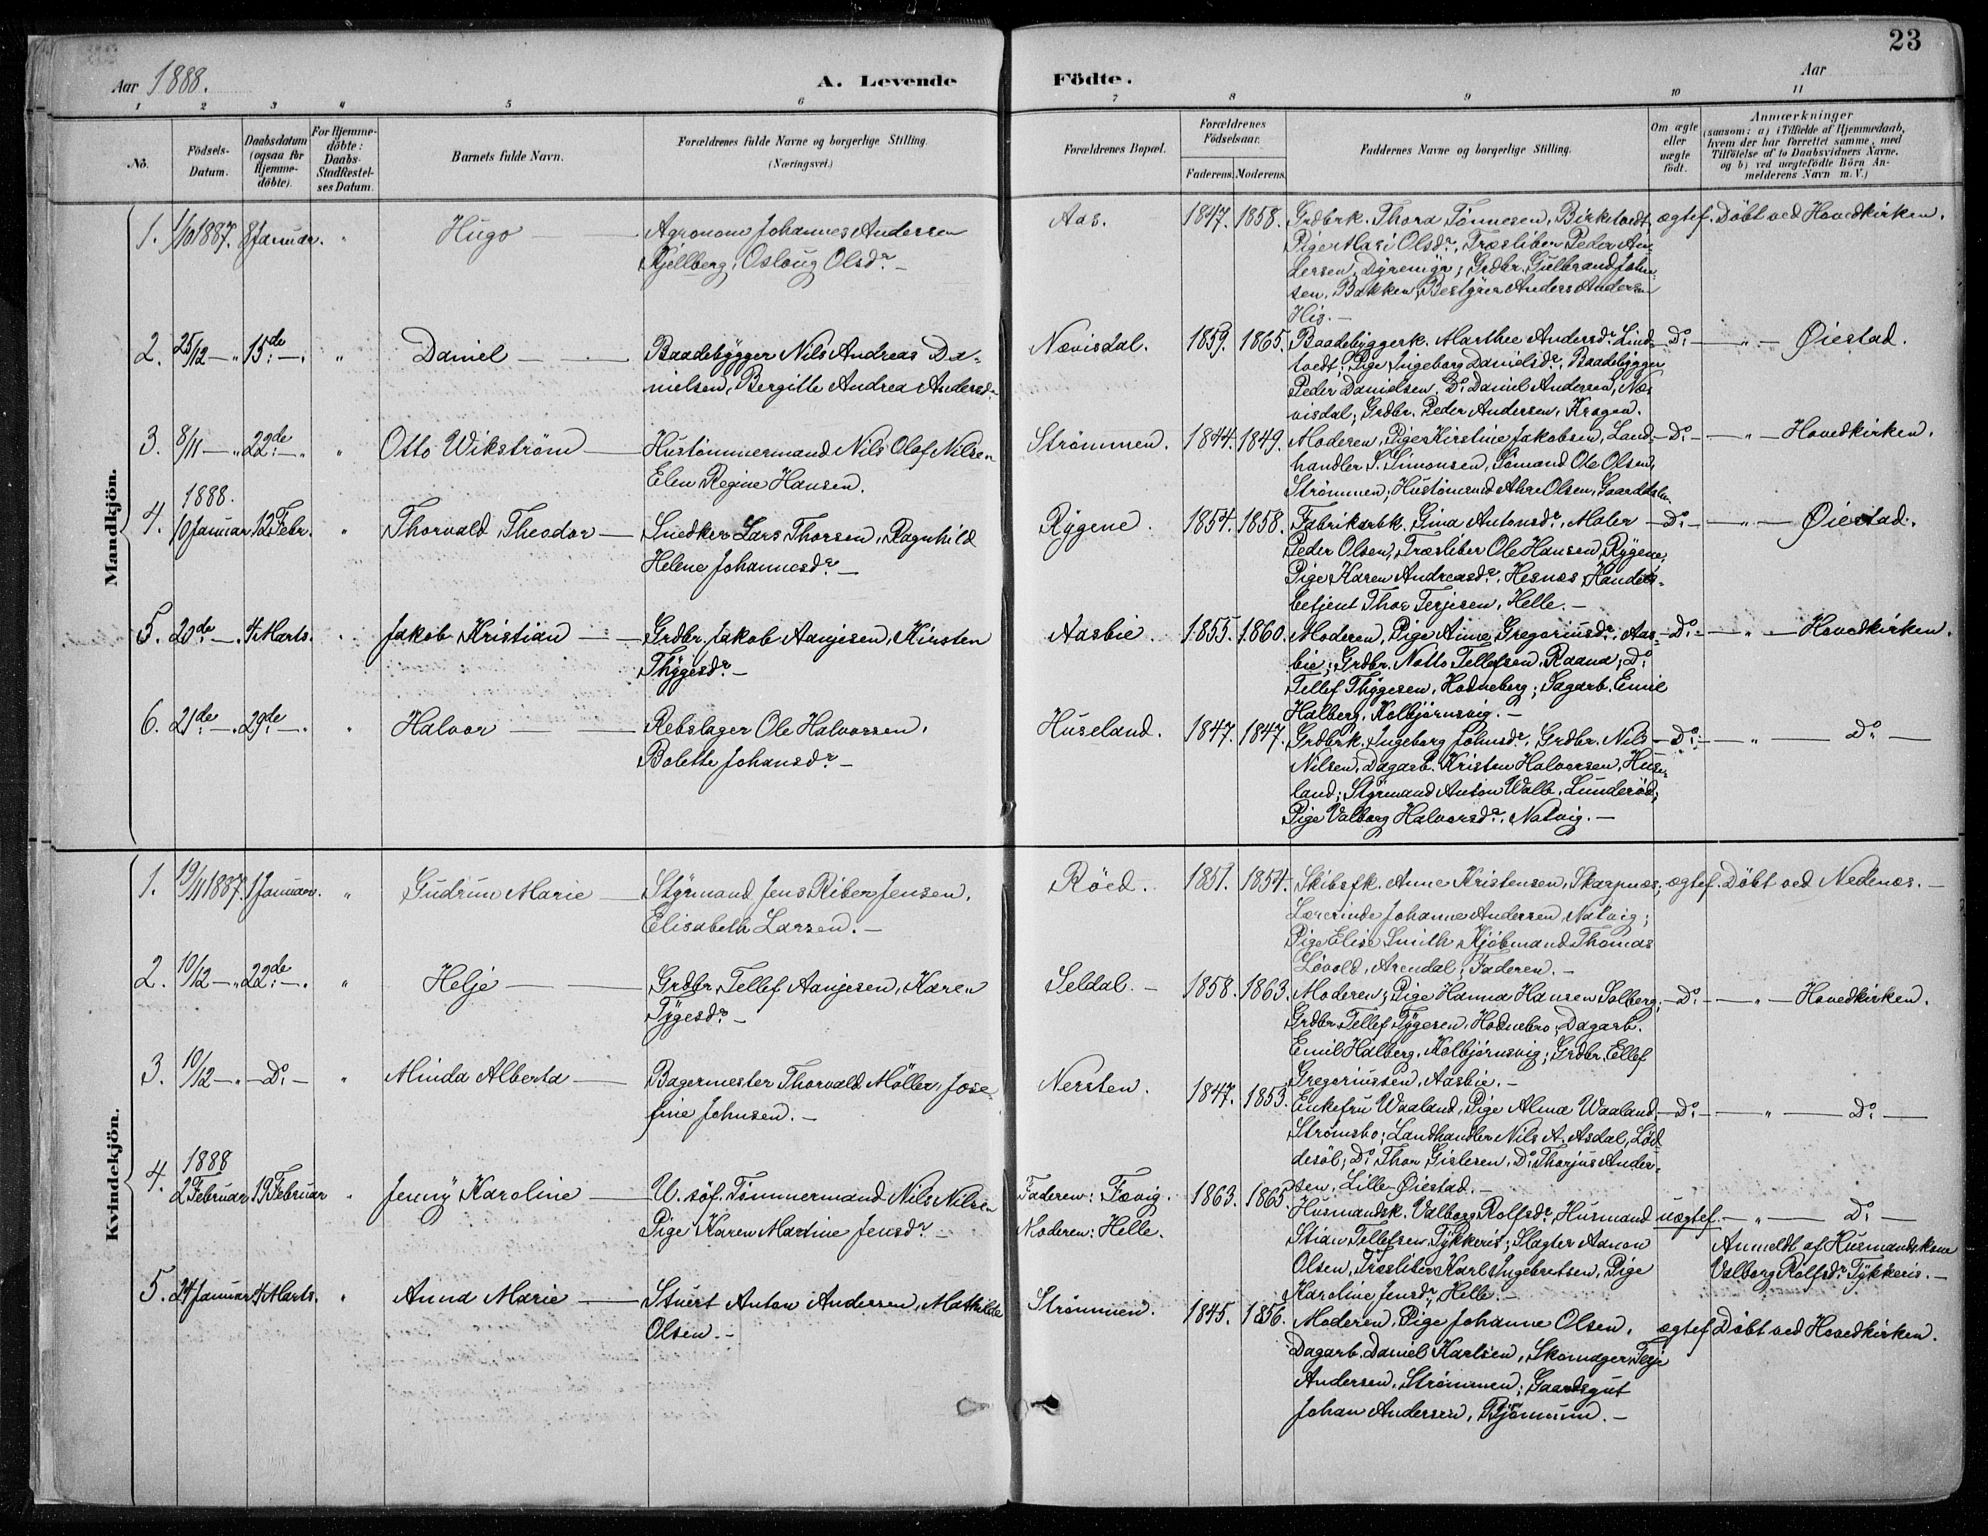 23
Aar 1888. A. Levende Födte. Aar
1 2 3 4 5 6 7 8 9 10 11
No.
Födsels-Datum.
Daabsdatum (ogsaa for Hjemme-döbte).
For Hjemme-döbte: Daabs-Stadfæstel-ses Datum.
Barnets fulde Navn.
Forældrenes fulde Navne og borgerlige Stilling.
(Næringsvei.)
Forældrenes Bopæl.
Forældrenes Födselsaar.
Faderens. Moderens.
Faddernes Navne og borgerlige Stilling.
Om ægte eller uægte födt.
Anmærkninger
(saasom: a) i Tilfælde af Hjemmedaab, hvem der har forrettet samme, med Tilföielse af to Daabsvidners Navne. og b) ved uægtefödte Börn An-melderens Navn m. V.)
Mandkjön.
1. 1/10 1887. 8 Januar. " Hugo — Agronom Johannes Andersen
Kjellberg, Osloug Olsdr. —
Aas. 1847. 1858. Grdbrk. Thora Tönnesen, Birketvedt,
Pige Mari Olsdr., Træsliber Peder An-
dersen, Dyremyr; Grdbr. Gulbrand John-
sen, Bakken, Bestyrer Anders Andersen
His. —
ægtef. Döbt ved Hovedkirken.
2. 25/12 — " 15de — " Daniel — Baadebygger Nils Andreas Da-
nielsen, Bergitte Andrea Andersdr.
Nævisdal. 1859. 1865. Baadebyggerk. Marthe Andersdr. Lind-
tvedt; Pige Ingeborg Danielsdr., Baadebygger
Peder Danielsen, Do. Daniel Andersen, Næ-
visdal; Grdbr. Peder Andersen, Krogen.
— Do. — " — Øiestad.
3. 8/11 — " 22de — " Otto Wikström — Hustömmermand Nils Olaf Nilsen
Elen Regine Hansen.
Strömmen. 1844. 1849. Moderen, Pige Kirstine Jakobsen, Land-
handler S. Simonsen, Sömand Ole Olsen,
Strömmen, Hustömmd Olsen,
— Do. — " — Hovedkirken.
1888.
4. 10 Januar 12 Febr. " Thorvald Theodor — Snedker Lars Thorsen, Ragnhild
Helene Johannesdr. —
Rygene. 1854. 1858. Fabrikarbk. Gina Antonsdr., Maler
Peder Olsen, Træsliber Ole Hansen, Rygene,
Pige Karen Andreasdr., Hesnes, Handels-
betjent Thor Terjesen, Helle. —
— Do. — " — Øiestad.
5. 20de — " 4 Marts. " Jakob Kristian — Grdbr. Jakob Aanjesen, Kirsten
Thygesdr. —
Aasbie. 1855. 1860. Moderen, Pige Anne Gregoriusdr., Aas-
bie; Grdbr. Notto Tellefsen, Raana; Do.
Tellef Thygesen, Hodneberg; Sagarb. Emil
Halberg, Kolbjörnsvig. —
— Do. — " — Hovedkirken.
6. 21de — " 29de — " Halvor — Rebslager Ole Halvorsen,
Bolette Johansdr. —
Huseland. 1847. 1847. Grdbrk. Ingeborg Johnsdr., Grdbr. Nils
Nilsen, Dagarb. Kristen Halvorsen, Huse-
land; Styrmand Anton Walle, Lunderöd;
Pige Valborg Halvorsdr., Natvig. —
— Do. — " — Do. —
Kvindekjön.
1. 19/11 1887. 1 Januar. " Gudrun Marie — Styrmand Jens Riber Jensen,
Elisabeth Larsen. —
Röed. 1851. 1854. Skibsfk. Anne Kristensen, Skarpnæs;
Lærerinde Johanne Andersen, Natvig;
Pige Elise Smith, Kjöbmand Thomas
Lövold, Arendal; Faderen. —
ægtef. Döbt ved Nedenæs. —
2. 10/12 — " 22de — " Helje — Grdbr. Tellef Aanjesen, Karen
Tygesdr. —
Seldal. — 1858. 1863. Moderen; Pige Hanna Hansen Solberg;
Grdbr. Tellef Tygesen, Hodnebro; Dagarb.
Emil Halberg, Kolbjörnsvig; Grdbr. Ellef
Gregoriussen, Aasbie. —
— Do. — " — Hovedkirken.
3. 10/12 — " — Do. — " Minda Alberta — Bagermester Thorvald Möller, Jose-
fine Johnsen. —
Nersten. 1847. 1853. Enkefru Waaland, Pige Alma Waaland,
Strömsbo; Landhandler Nils A. Asdal, Löd-
desöl; Do. Thor Gislesen, Do. Thorjus Ander-
sen, Lille-Øiestad. —
— Do. — " — Do. —
1888
4. 2 Februar 19 Februar " Jenny Karoline — U. söf. Tömmermand Nils Nilsen
Pige Karen Martine Jensdr. —
Faderen: Fævig.
Moderen: Helle.
1863. 1865. Husmandsk. Valborg Rolfsdr., Husmand
Stian Tellefsen, Tykkeris; Slagter Aanon
Olsen, Træsliber Karl Ingebretsen, Pige
Karoline Jensdr., Helle. —
uægtef. — " — Do. —
Anmeldt af Husmandskone
Valborg Rolfsdr. Tykkeris. —
5. 24 Januar 4 Marts. " Anna Marie — Stuert Anton Andersen, Mathilde
Olsen. —
Strömmen. 1845. 1856. Moderen, Pige Johanne Olsen,
Dagarb. Daniel Karlsen, Skomager Terje
Andersen, Strömmen; Gaardsgut
Johan Andersen, Bjömunn. —
ægtef. Döbt ved Hovedkirken.